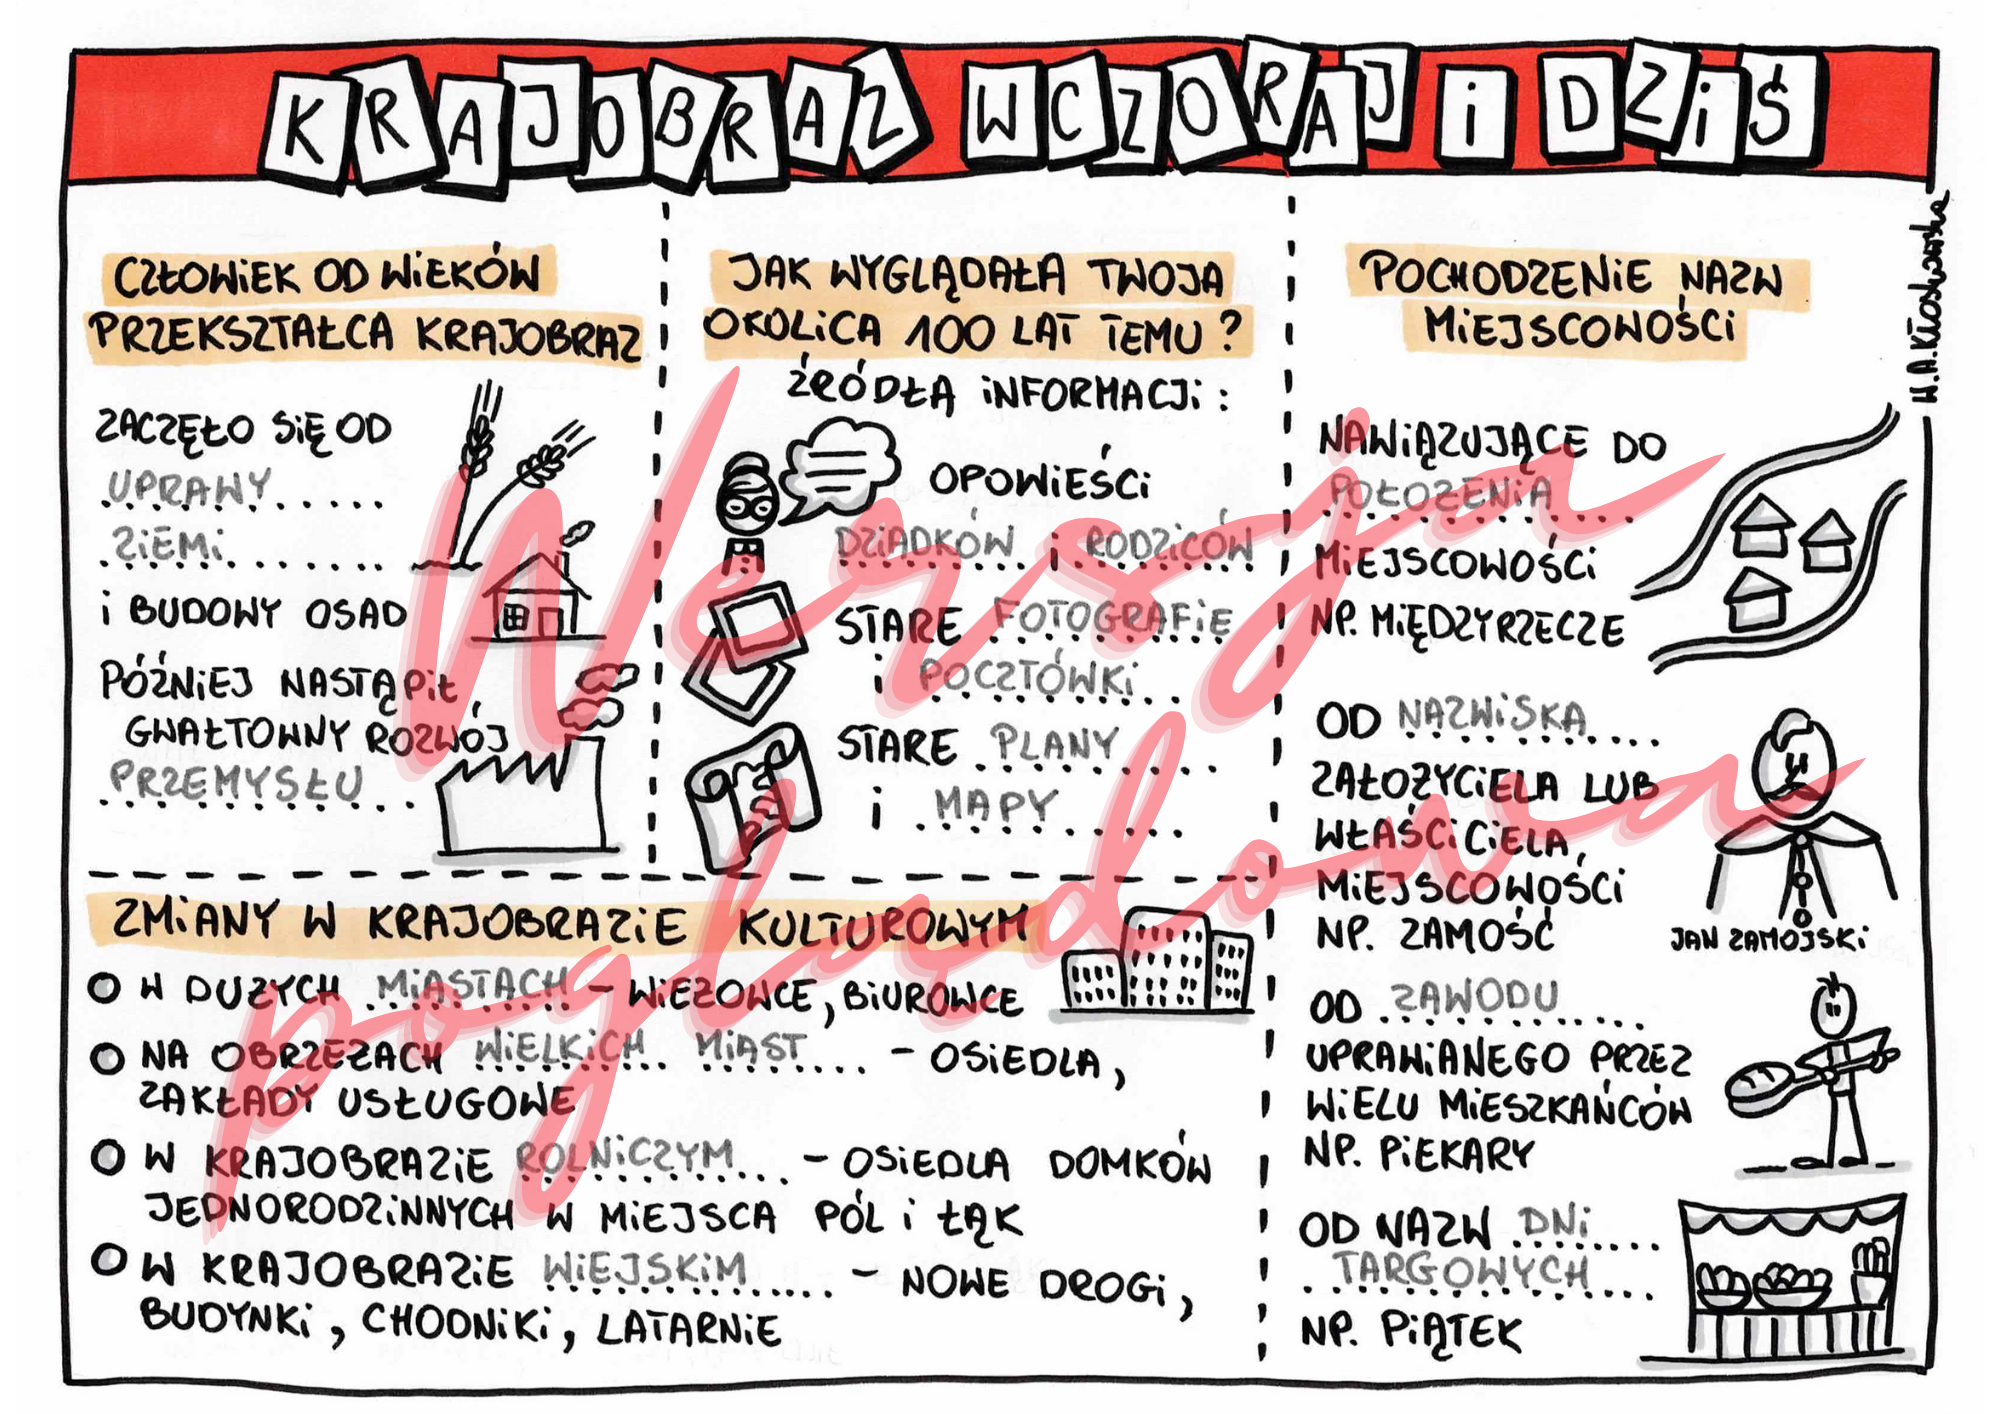 KRAJOBRAZ WCZORAJ I DZIŚ
CZŁOWIEK OD WIEKÓW
PRZEKSZTAŁCA KRAJOBRAZ
ZACZĘŁO SIĘ OD
UPRAWY
ZIEMI
I BUDOWY OSAD
PÓŹNIEJ NASTĄPIŁ
GWAŁTOWNY ROZWÓJ
PRZEMYSŁU
JAK WYGLĄDAŁA TWOJA
OKOLICA 100 LAT TEMU?
ŹRÓDŁA INFORMACJI:
OPOWIEŚCI
DZIADKÓW I RODZICÓW
STARE FOTOGRAFIE
I POCZTÓWKI
STARE PLANY
I MAPY
POCHODZENIE NAZW
MIEJSCOWOŚCI
NAWIĄZUJĄCE DO
POŁOŻENIA
MIEJSCOWOŚCI
NP. MIĘDZYRZECZE
OD NAZWISKA
ZAŁOŻYCIELA LUB
WŁAŚCICIELA
MIEJSCOWOŚCI
NP. ZAMOŚĆ
JAN ZAMOJSKI
OD ZAWODU
UPRAWIANEGO PRZEZ
WIELU MIESZKAŃCÓW
NP. PIEKARY
OD NAZW DNI
TARGOWYCH
NP. PIĄTEK
ZMIANY W KRAJOBRAZIE KULTUROWYM
W DUŻYCH MIASTACH – WIEŻOWCE, BIUROWCE
NA OBRZEŻACH WIELKICH MIAST – OSIEDLA,
ZAKŁADY USŁUGOWE
W KRAJOBRAZIE ROLNICZYM – OSIEDLA DOMKÓW
JEDNORODZINNYCH W MIEJSCA PÓL I ŁĄK
W KRAJOBRAZIE WIEJSKIM – NOWE DROGI,
BUDYNKI, CHODNIKI, LATARNIE
W.A.Kłosłowska
Wersja
poglądowa